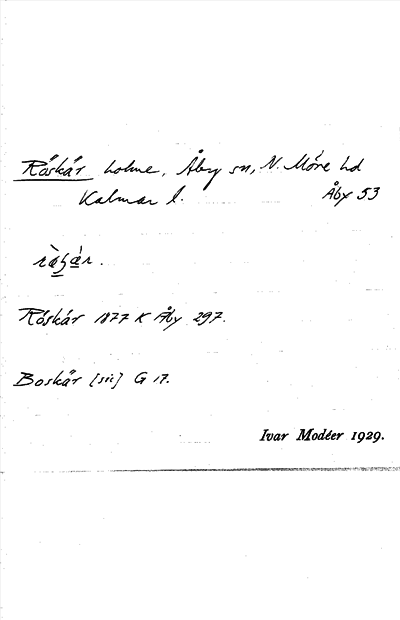 Röskär holme, Åby sn, N. Möre hd
Kalmar l. Åby 53
Röskär 1877 K Åby 297.
Boskär [sic] G 17.
Ivar Modéer 1929.